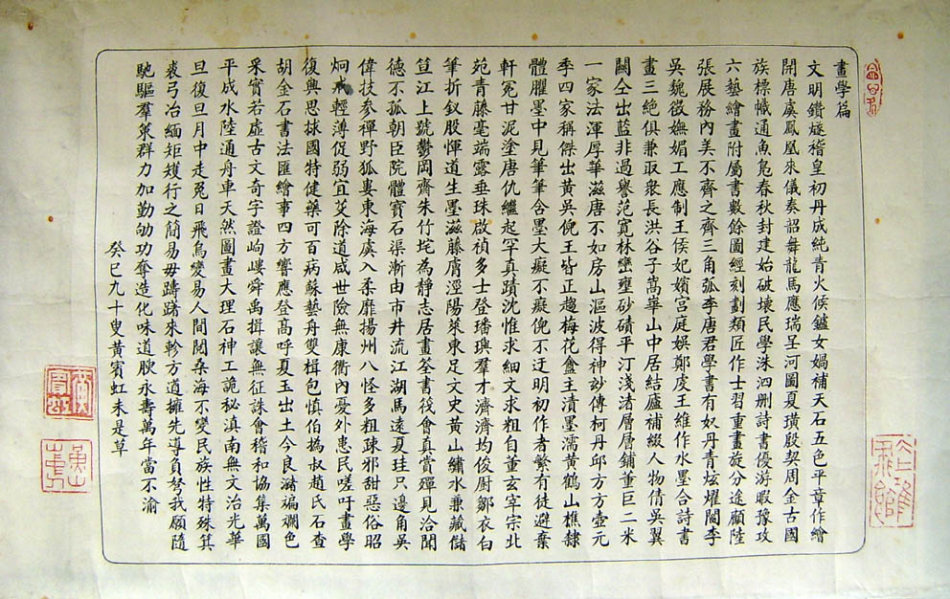 畫學篇
文明鑽燧稽皇初丹成純青火候鑪女媧補天石五色平章作繪
開唐虞鳳凰來儀奏韶舞龍馬應瑞呈河圖夏璜殷契周金古國
族標幟通魚鳧春秋封建始破壞民學洙泗刪詩書優游暇豫攻
六藝繪畫附屬書數餘圖經刻劃類匠作士習重畫旋分途顧陸
張展務內美不齊之齊三角弧李唐君學書有奴丹青炫耀閻李
吳魏徵嫵媚工應制王侯妃嬪宮庭娛鄭虔王維作水墨合詩書
畫三絕俱兼取衆長洪谷子嵩華山中居結廬補綴人物倩吳翼
關仝出藍非過譽范寬林巒壅砂磧平汀淺渚層層鋪董巨二米
一家法渾厚華滋唐不如房山漚波得神妙傳柯丹邱方方壺元
季四家稱傑出黃吳倪王皆正趨梅花盦主漬墨濡黃鶴山樵隸
體臞墨中見筆筆含墨大癡不癡倪不迂明初作者繁有徒避棄
軒冕甘泥塗唐仇繼起罕真蹟沈惟求細文求粗自董玄宰宗北
苑青藤毫端露垂珠啟禎多士登璠璵羣才濟濟均俊廚鄒衣白
筆折釵股惲道生墨滋藤膚涇陽萊東足文史黃山繡水兼藏儲
笪江上號鬱岡齋朱竹垞為靜志居畫筌書筏會真賞殫見洽聞
德不孤朝臣院體寶石渠漸由市井流江湖馬遠夏珪只邊角吳
偉技參禪野狐婁東海虞入柔靡揚州八怪多粗疎邪甜惡俗昭
炯戒輕薄促弱宜芟除道咸世險無康衢內憂外患民嗟吁畫學
復興思捄國特健藥可百病蘇藝舟雙楫包慎伯撝叔趙氏石查
胡金石書法匯繪事四方響應登高呼夏玉出土今良渚斒斕色
采實若虛古文奇字證岣嶁舜禹揖讓無征誅會稽和協集萬國
平成水陸通舟車天然圖畫大理石神工詭秘滇南無文治光華
旦復旦月中走兔日飛烏變易人間閱桑海不變民族性特殊箕
裘弓冶緬矩矱行之簡易毋躊躇來軫方遒擁先導負弩我願隨
馳驅羣策群力加勤劬功奪造化味道腴永壽萬年當不渝
癸巳九十叟黃賓虹未是草
黃賓虹